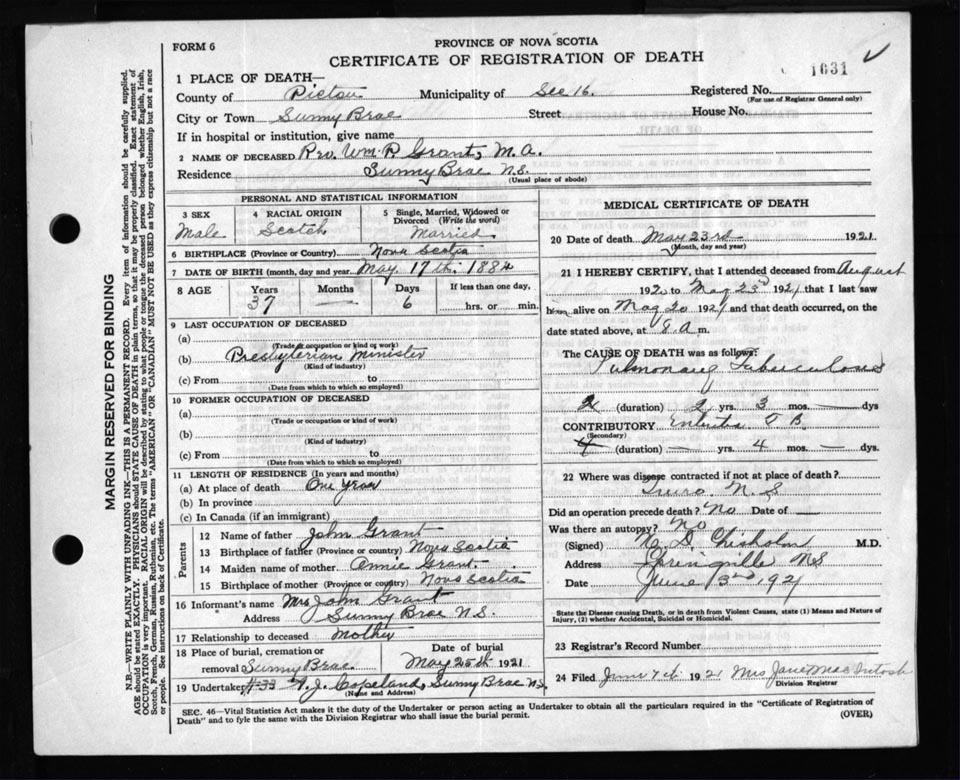 FORM 6
PROVINCE OF NOVA SCOTIA
CERTIFICATE OF REGISTRATION OF DEATH
1631
1 PLACE OF DEATH—
County of Pictou Municipality of Sec 16. Registered No.
(For use of Registrar General only)
City or Town Sunny Brae Street House No.
If in hospital or institution, give name
2 NAME OF DECEASED Rev. Wm. R Grant, M.A.
Residence Sunny Brae N.S.
(Usual place of abode)
PERSONAL AND STATISTICAL INFORMATION
3 SEX Male
4 RACIAL ORIGIN Scotch
5 Single, Married, Widowed or Divorced (Write the word) Married
6 BIRTHPLACE (Province or Country) Nova Scotia
7 DATE OF BIRTH (month, day and year) May 17th. 1884
8 AGE Years 37 Months — Days 6 If less than one day, hrs. or min.
9 LAST OCCUPATION OF DECEASED
(a)
(Trade or occupation or kind of work)
(b) Presbyterian Minister
(Kind of industry)
(c) From to
(Date from which to which so employed)
10 FORMER OCCUPATION OF DECEASED
(a)
(Trade or occupation or kind of work)
(b)
(Kind of industry)
(c) From to
(Date from which to which so employed)
11 LENGTH OF RESIDENCE (In years and months)
(a) At place of death One year
(b) In province
(c) In Canada (if an immigrant)
Parents
12 Name of father John Grant
13 Birthplace of father (Province or country) Nova Scotia
14 Maiden name of mother Annie Grant
15 Birthplace of mother (Province or country) Nova Scotia
16 Informant's name Mrs John Grant
Address Sunny Brae N.S.
17 Relationship to deceased Mother
18 Place of burial, cremation or removal Sunny Brae Date of burial May 25th 1921
19 Undertaker #33 A. J. Copeland, Sunny Brae N.S.
(Name and Address)
MEDICAL CERTIFICATE OF DEATH
20 Date of death May 23rd 1921
(Month, day and year)
21 I HEREBY CERTIFY, that I attended deceased from August
1920 to May 23rd 1921 that I last saw
him alive on May 20 1921 and that death occurred, on the
date stated above, at 8 A m.
The CAUSE OF DEATH was as follows:
Pulmonary Tuberculosis
2 (duration) 2 yrs. 3 mos. — dys
CONTRIBUTORY T B
(Secondary)
4 (duration) — yrs. 4 mos. — dys.
22 Where was disease contracted if not at place of death?
Truro. N. S
Did an operation precede death? No Date of —
Was there an autopsy? No
(Signed) Chisholm M.D.
Address Springville N.S
Date June 3rd 1921
State the Disease causing Death, or in death from Violent Causes, state (1) Means and Nature of Injury, (2) whether Accidental, Suicidal or Homicidal.
23 Registrar's Record Number
24 Filed June 7th 1921 Mrs Jane MacIntosh
Division Registrar
SEC. 46—Vital Statistics Act makes it the duty of the Undertaker or person acting as Undertaker to obtain all the particulars required in the "Certificate of Registration of
Death" and to fyle the same with the Division Registrar who shall issue the burial permit. (OVER)
MARGIN RESERVED FOR BINDING
N.B.—WRITE PLAINLY WITH UNFADING INK—THIS IS A PERMANENT RECORD. Every item of information should be carefully supplied.
AGE should be stated EXACTLY. PHYSICIANS should STATE CAUSE OF DEATH in plain terms, so that it may be properly classified. Exact statement of
OCCUPATION is very important. RACIAL ORIGIN will be described by stating to what people or tongue the deceased person belonged whether English, Irish,
Scotch, French, German, Russian, Ruthenian, etc. The terms "AMERICAN" OR "CANADIAN" MUST NOT BE USED as they express citizenship but not a race
or people. See instructions on back of Certificate.